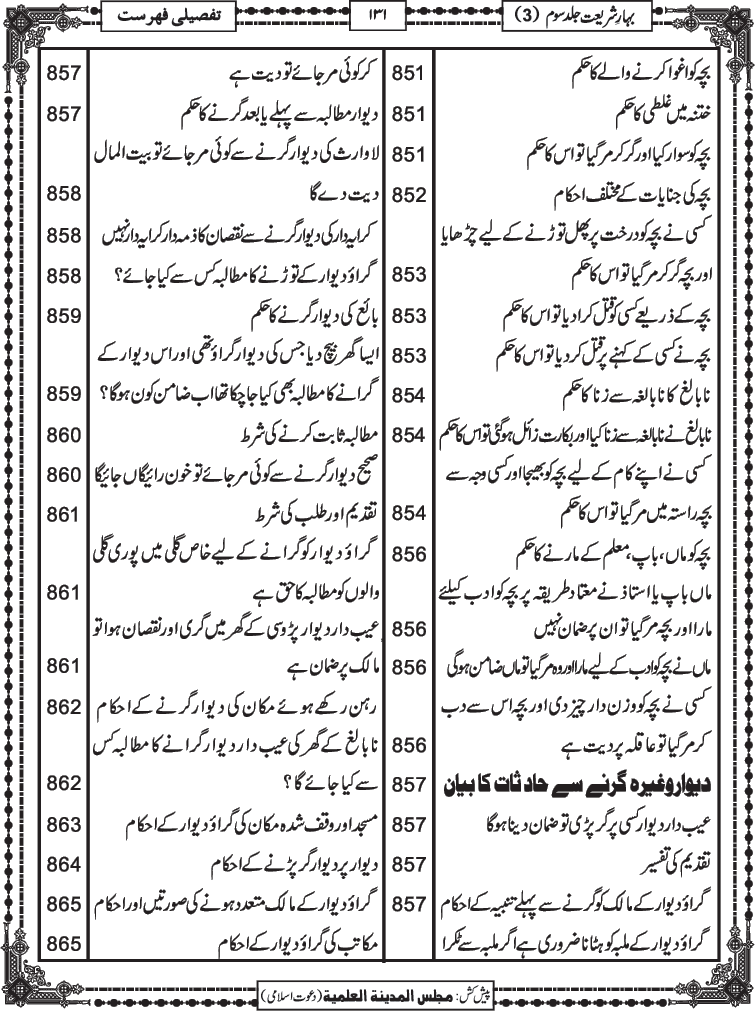 بہارِ شریعت جلد سوم (3)
۱۳۱
تفصیلی فہرست
بچہ کو اغوا کرنے والے کا حکم 851
ختنہ میں غلطی کا حکم 851
بچہ کو سوار کیا اور گر کر مر گیا تو اس کا حکم 851
بچہ کی جنایات کے مختلف احکام 852
کسی نے بچہ کو درخت پر پھل توڑنے کے لیے چڑھایا
اور بچہ گر کر مر گیا تو اس کا حکم 853
بچہ کے ذریعے کسی کو قتل کرا دیا تو اس کا حکم 853
بچہ نے کسی کے کہنے پر قتل کر دیا تو اس کا حکم 853
نابالغ کا نابالغہ سے زنا کا حکم 854
نابالغ نے نابالغہ سے زنا کیا اور بکارت زائل ہوگئی تو اس کا حکم 854
کسی نے اپنے کام کے لیے بچہ کو بھیجا اور کسی وجہ سے
بچہ راستہ میں مر گیا تو اس کا حکم 854
بچہ کو ماں، باپ، معلم کے مارنے کا حکم 856
ماں باپ یا استاذ نے معتاد طریقہ پر بچہ کو ادب کیلئے
مارا اور بچہ مر گیا تو ان پر ضمان نہیں 856
ماں نے بچہ کو ادب کے لیے مارا اور وہ مر گیا تو ماں ضامن ہوگی 856
کسی نے بچہ کو وزن دار چیز دی اور بچہ اس سے دب
کر مر گیا تو عاقلہ پر دیت ہے 856
دیوار وغیرہ گرنے سے حادثات کا بیان 857
عیب دار دیوار کسی پر گر پڑی تو ضمان دینا ہوگا 857
تقدیم کی تفسیر 857
گراؤ دیوار کے مالک کو گرنے سے پہلے تنبیہ کے احکام 857
گراؤ دیوار کے ملبہ کو ہٹانا ضروری ہے اگر ملبہ سے ٹکرا
کر کوئی مر جائے تو دیت ہے 857
دیوار مطالبہ سے پہلے یا بعد گرنے کا حکم 857
لاوارث کی دیوار گرنے سے کوئی مر جائے تو بیت المال
دیت دے گا 858
کرایہ دار کی دیوار گرنے سے نقصان کا ذمہ دار کرایہ دار نہیں 858
گراؤ دیوار کے توڑنے کا مطالبہ کس سے کیا جائے؟ 858
بائع کی دیوار گرنے کا حکم 859
ایسا گھر بیچ دیا جس کی دیوار گراؤ تھی اور اس دیوار کے
گرانے کا مطالبہ بھی کیا جا چکا تھا اب ضامن کون ہوگا؟ 859
مطالبہ ثابت کرنے کی شرط 860
صحیح دیوار گرنے سے کوئی مر جائے تو خون رائیگاں جائیگا 860
تقدیم اور طلب کی شرط 861
گراؤ دیوار کو گرانے کے لیے خاص گلی میں پوری گلی
والوں کو مطالبہ کا حق ہے 861
عیب دار دیوار پڑوسی کے گھر میں گری اور نقصان ہوا تو
مالک پر ضمان ہے 861
رہن رکھے ہوئے مکان کی دیوار گرنے کے احکام 862
نابالغ کے گھر کی عیب دار دیوار گرانے کا مطالبہ کس
سے کیا جائے گا؟ 862
مسجد اور وقف شدہ مکان کی گراؤ دیوار کے احکام 863
دیوار پر دیوار گر پڑنے کے احکام 864
گراؤ دیوار کے مالک متعدد ہونے کی صورتیں اور احکام 865
مکاتب کی گراؤ دیوار کے احکام 865
پیش کش: مجلس المدینۃ العلمیۃ (دعوت اسلامی)